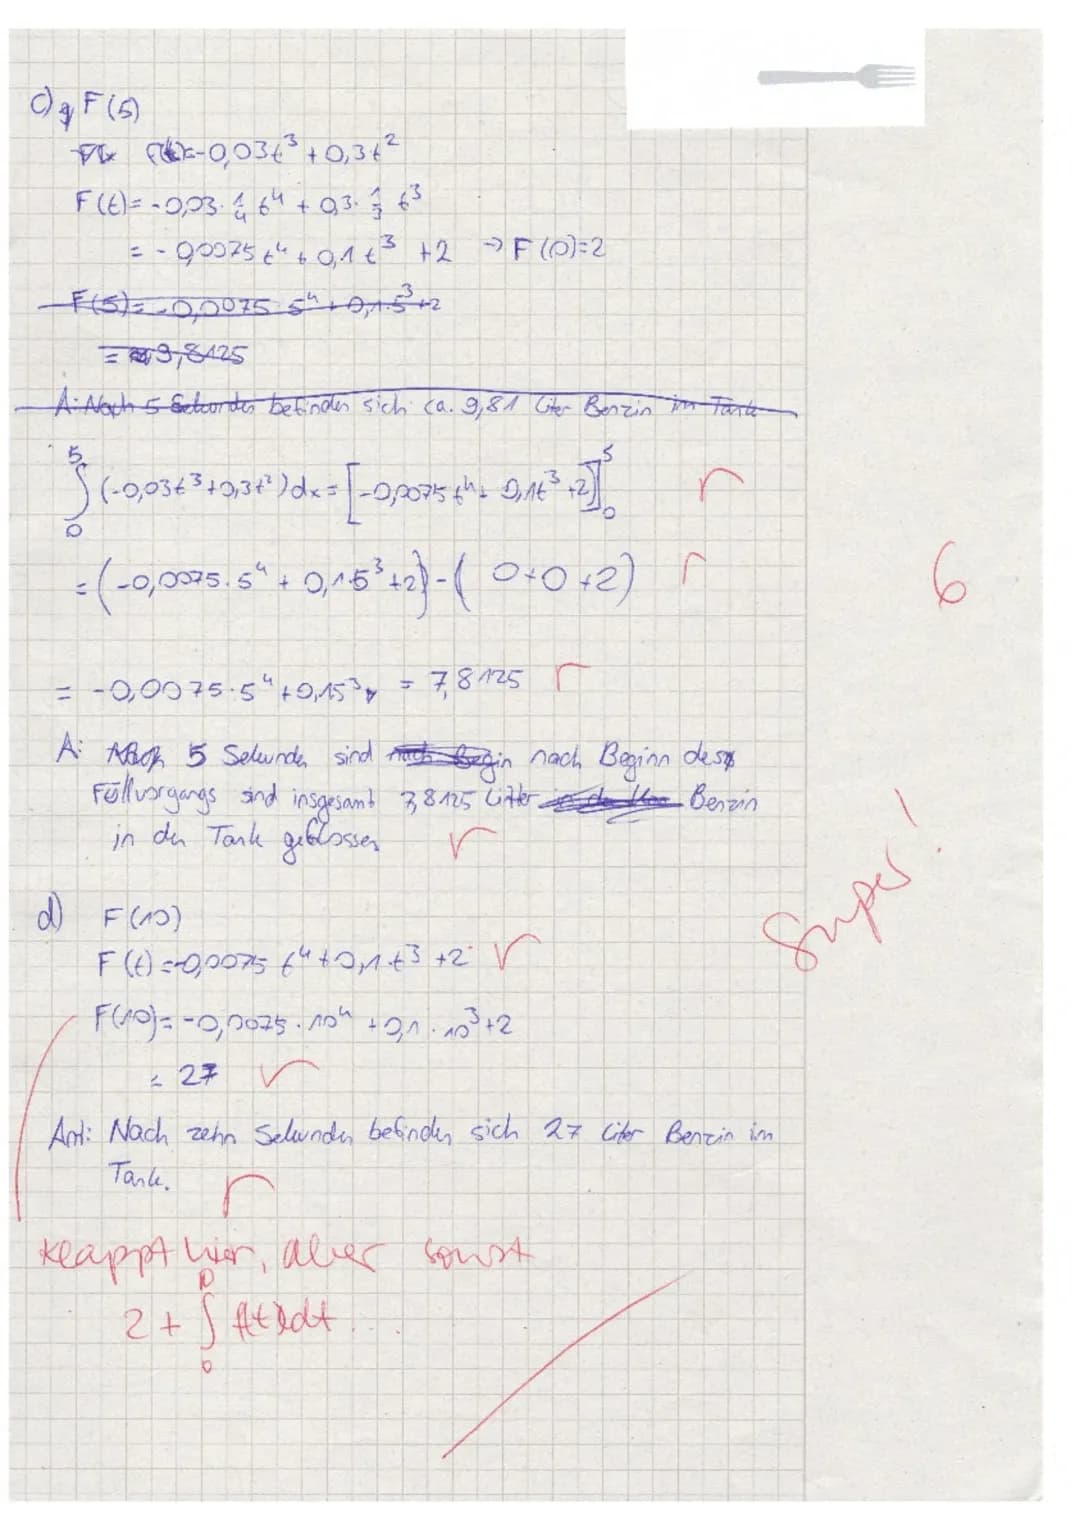 c) F(5)
f(t)=-0,03t³+0,3t²
F(t)=-0,03·¼t⁴+0,3·⅓t³
=-0,0075t⁴+0,1t³+2 → F(0)=2
F(5)=-0,0075·5⁴+0,1·5³+2
=9,8125
A: Nach 5 Sekunden befinden sich ca. 9,81 Liter Benzin im Tank
∫₀⁵(-0,03t³+0,3t²)dx=[-0,0075t⁴+0,1t³+2]₀⁵
=(-0,0075·5⁴+0,1·5³+2)-(0+0+2)
6
=-0,0075·5⁴+0,15³=7,8125
A: 5 Sekunden sind nach Begin nach Beginn des
Füllvorgangs sind insgesamt 7,8125 Litter Benzin
in den Tank geflossen
Super!
d) F(10)
F(t)=-0,0075t⁴+0,1·t³+2
F(10)=-0,0075·10⁴+0,1·10³+2
=27
Ant: Nach zehn Sekunden befinden sich 27 Liter Benzin im
Tank.
klappt hier, aber sonst
2+∫₀¹⁰f(t)dt...